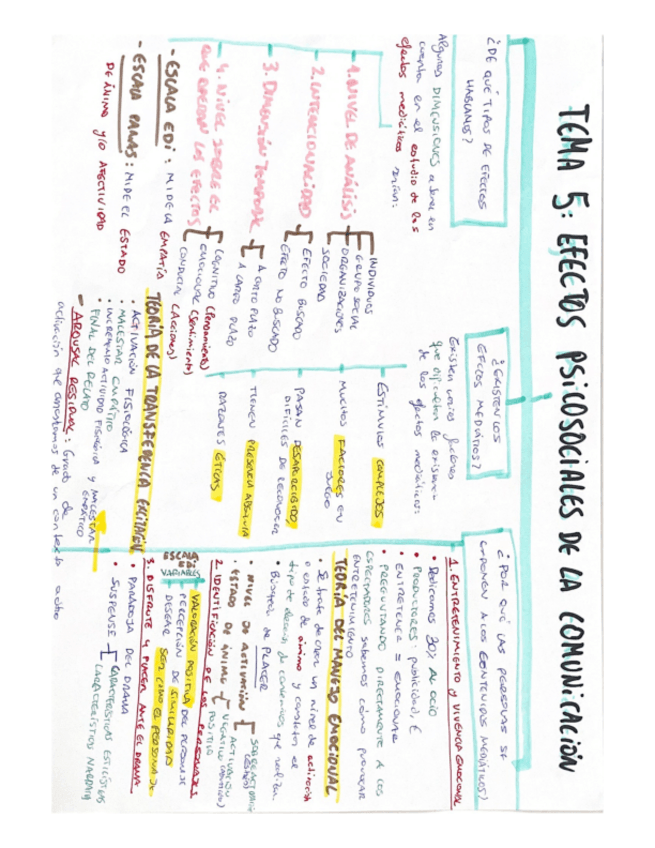 TEMA 5: EFECTOS PSICOSOCIALES DE LA COMUNICACIÓN
¿DE QUÉ TIPOS DE EFECTOS
HABLAMOS?
Algunas DIMENSIONES a tener en
cuenta en el estudio de los
efectos mediáticos serían:
1. NIVEL DE ANÁLISIS
INDIVIDUOS
GRUPO SOCIAL
ORGANIZACIONES
SOCIEDAD
2. INTENCIONALIDAD
EFECTO BUSCADO
EFECTO NO BUSCADO
3. DIMENSIÓN TEMPORAL
A CORTO PLAZO
A LARGO PLAZO
4. NIVEL SOBRE EL
QUE OPERAN LOS EFECTOS
COGNITIVO (Pensamiento)
EMOCIONAL (Sentimiento)
CONDUCTUAL (Acciones)
- ESCALA EDI: MIDE LA EMPATÍA
- ESCALA PANAS: MIDE EL ESTADO
DE ÁNIMO Y/O AFECTIVIDAD
¿EXISTEN LOS
EFECTOS MEDIÁTICOS?
Existen varios factores
que dificultan la existencia
de los efectos mediáticos:
ESTÍMULOS COMPLEJOS
MUCHOS FACTORES EN
JUEGO
PASAN DESAPERCIBIDO,
DIFÍCILES DE RECONOCER
TIENEN PRESENCIA ABSOLUTA
RAZONES ÉTICAS
TEORÍA DE LA TRANSFERENCIA EXCITACIÓN
• ACTIVACIÓN FISIOLÓGICA
• MALESTAR EMPÁTICO
• INCREMENTO ACTIVIDAD FISIOLÓGICA Y MALESTAR
EMPÁTICO
• FINAL DEL RELATO
- AROUSAL RESIDUAL: Grado de
activación que arrastramos de un contexto a otro
¿POR QUÉ LAS PERSONAS SE
EXPONEN A LOS CONTENIDOS MEDIÁTICOS?
1. ENTRETENIMIENTO Y VIVENCIA EMOCIONAL
• Dedicamos 30% AL OCIO
• PRODUCTORES: publicidad, €
• ENTRETENER = EMOCIONAR
• PREGUNTANDO DIRECTAMENTE A LOS
ESPECTADORES sabemos cómo provocar
ENTRETENIMIENTO
TEORÍA DEL MANEJO EMOCIONAL
• Se trata de crear un nivel de activación
o estado de ánimo y constituir el
tipo de elección de contenidos que realizan.
• Búsqueda de PLACER
• NIVEL DE ACTIVACIÓN
ACTIVACIÓN
• ESTADO DE ÁNIMO
NEGATIVO
POSITIVO
2. IDENTIFICACIÓN DE LOS PERSONAJES
ESCALA
VARIABLES
VALORACIÓN POSITIVA DEL PERSONAJE
PERCEPCIÓN DE SIMILARIDAD
DESEAR SER COMO EL PERSONAJE
3. DISFRUTE Y PLACER ANTE EL DRAMA
• PARADOJA DEL DRAMA
• SUSPENSE
CARACTERÍSTICAS ESTILÍSTICAS